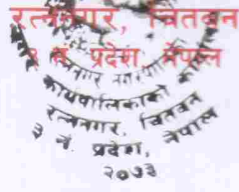 रत्ननगर, चितवन
३ नं. प्रदेश, नेपाल
नगर कार्यपालिकाको
रत्ननगर, चितवन
३ नं. प्रदेश, नेपाल
२०७३